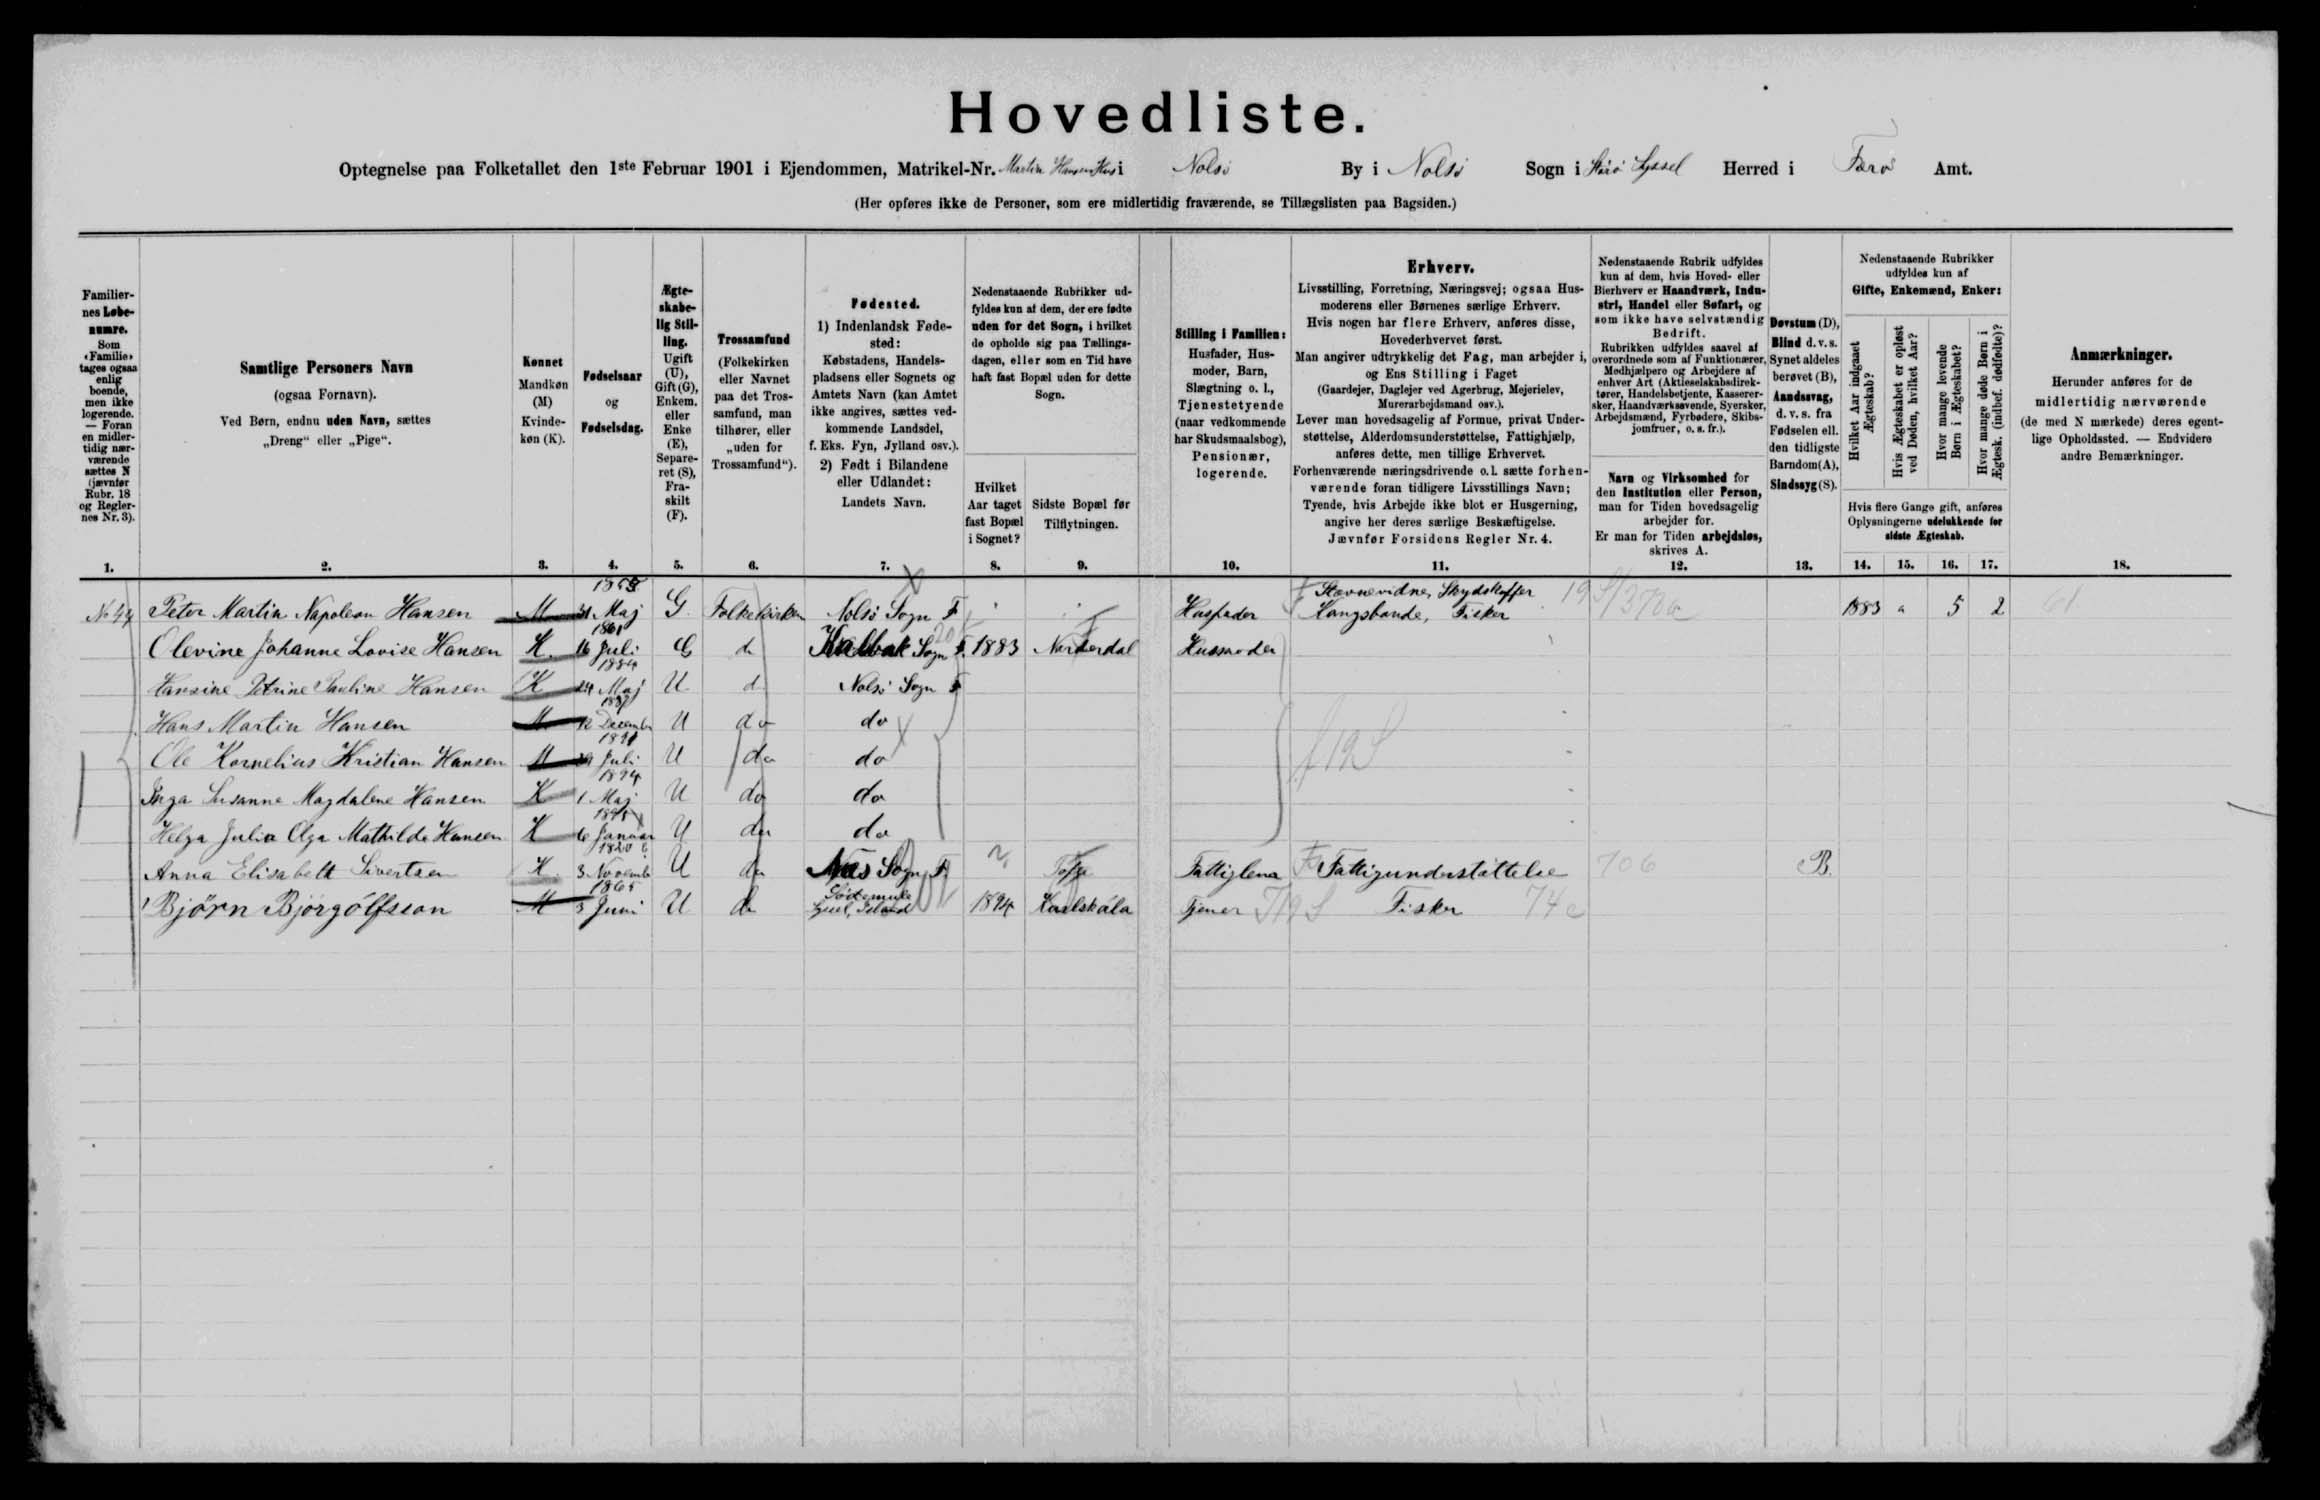 Hovedliste.
Optegnelse paa Folketallet den 1ste Februar 1901 i Ejendommen, Matrikel-Nr. Martin Hansens Hus i Nolsö By i Nolsö Sogn i Syssel Herred i Færö Amt.
(Her opføres ikke de Personer, som ere midlertidig fraværende, se Tillægslisten paa Bagsiden.)
Familiernes Løbenumre.
Som «Familie» tages ogsaa enlig boende, men ikke logerende. — Foran en midlertidig nærværende sættes N (jævnfør Rubr. 18 og Reglernes Nr. 3).
Samtlige Personers Navn
(ogsaa Fornavn).
Ved Børn, endnu uden Navn, sættes
„Dreng“ eller „Pige“.
Kønnet
Mandkøn (M)
Kvindekøn (K).
Fødselsaar
og
Fødselsdag.
Ægteskabelig Stilling.
Ugift (U), Gift (G), Enkem. eller Enke (E), Separeret (S), Fraskilt (F).
Trossamfund
(Folkekirken eller Navnet paa det Trossamfund, man tilhører, eller „uden for Trossamfund“).
Fødested.
1) Indenlandsk Fødested:
Købstadens, Handelspladsens eller Sognets og Amtets Navn (kan Amtet ikke angives, sættes vedkommende Landsdel, f. Eks. Fyn, Jylland osv.).
2) Født i Bilandene eller Udlandet:
Landets Navn.
Nedenstaaende Rubrikker udfyldes kun af dem, der ere fødte uden for det Sogn, i hvilket de opholde sig paa Tællingsdagen, eller som en Tid have haft fast Bopæl uden for dette Sogn.
Hvilket Aar taget fast Bopæl i Sognet?
Sidste Bopæl før Tilflytningen.
Stilling i Familien:
Husfader, Husmoder, Barn, Slægtning o. l., Tjenestetyende (naar vedkommende har Skudsmaalsbog), Pensionær, logerende.
Erhverv.
Livsstilling, Forretning, Næringsvej; ogsaa Husmoderens eller Børnenes særlige Erhverv.
Hvis nogen har flere Erhverv, anføres disse, Hovederhvervet først.
Man angiver udtrykkelig det Fag, man arbejder i, og Ens Stilling i Faget
(Gaardejer, Daglejer ved Agerbrug, Mejerielev, Murerarbejdsmand osv.).
Lever man hovedsagelig af Formue, privat Understøttelse, Alderdomsunderstøttelse, Fattighjælp, anføres dette, men tillige Erhvervet.
Forhenværende næringsdrivende o. l. sætte forhenværende foran tidligere Livsstillings Navn;
Tyende, hvis Arbejde ikke blot er Husgerning, angive her deres særlige Beskæftigelse.
Jævnfør Forsidens Regler Nr. 4.
Nedenstaaende Rubrik udfyldes kun af dem, hvis Hoved- eller Bierhverv er Haandværk, Industri, Handel eller Søfart, og som ikke have selvstændig Bedrift.
Rubrikken udfyldes saavel af overordnede som af Funktionærer, Medhjælpere og Arbejdere af enhver Art (Aktieselskabsdirektører, Handelsbetjente, Kasserersker, Haandværkssvende, Syersker, Arbejdsmænd, Fyrbødere, Skibsjomfruer, o. s. fr.).
Navn og Virksomhed for den Institution eller Person, man for Tiden hovedsagelig arbejder for.
Er man for Tiden arbejdsløs, skrives A.
Døvstum (D), Blind d. v. s. Synet aldeles berøvet (B), Aandssvag, d. v. s. fra Fødselen ell. den tidligste Barndom (A), Sindssyg (S).
Nedenstaaende Rubrikker udfyldes kun af
Gifte, Enkemænd, Enker:
Hvilket Aar indgaaet Ægteskab?
Hvis Ægteskabet er opløst ved Døden, hvilket Aar?
Hvor mange levende Børn i Ægteskabet?
Hvor mange døde Børn i Ægtesk. (indbef. dødfødte)?
Hvis flere Gange gift, anføres Oplysningerne udelukkende for sidste Ægteskab.
Anmærkninger.
Herunder anføres for de midlertidig nærværende (de med N mærkede) deres egentlige Opholdssted. — Endvidere andre Bemærkninger.
1. 2. 3. 4. 5. 6. 7. 8. 9. 10. 11. 12. 13. 14. 15. 16. 17. 18.
No 44 Peter Martin Napoleon Hansen M Maj G Folkekirken Nolsö Sogn F Husfader Stævnevidne, Skydskaffer Kongsbonde, Fisker 1883 5 2 61
Olevine Johanne Lovise Hansen K. 1861 16 Juli G do Kalbak Sogn F. 1883 Norderdal Husmoder
Hansine Petrine Pauline Hansen K 1884 24 Maj U do Nolsö Sogn F
Hans Martin Hansen M 12 December U do do
Ole Kornelius Kristian Hansen M 1891 Juli U do do f 19 S
Inga Susanne Magdalene Hansen K 1894 1 Maj U do do
Helga Julia Olga Mathilde Hansen K 6 Januar U do do
Anna Elisabeth Sivertsen K. 1820 3 Novemb U do Næs Sogn F. Tofte Fattiglem Fattigunderstøttelse 706 B.
Björn Björgólfsson M 1865 3 Juni U do Island 1894 Karlskála Tjener Fisker 74 c